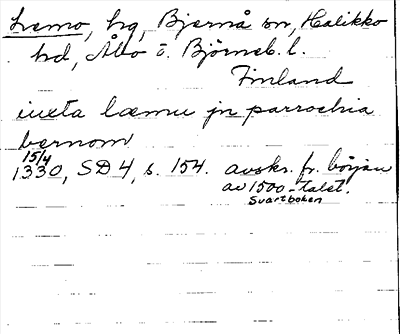 Lemo, hg, Bjernå sn, Halikko
hd, Åbo ō. Björneb. l.
Finland
iuxta læmu jn parrochia
bernom
15/4
1330, SD 4, s. 154. avskr. fr. början
av 1500-talet.
Svartboken